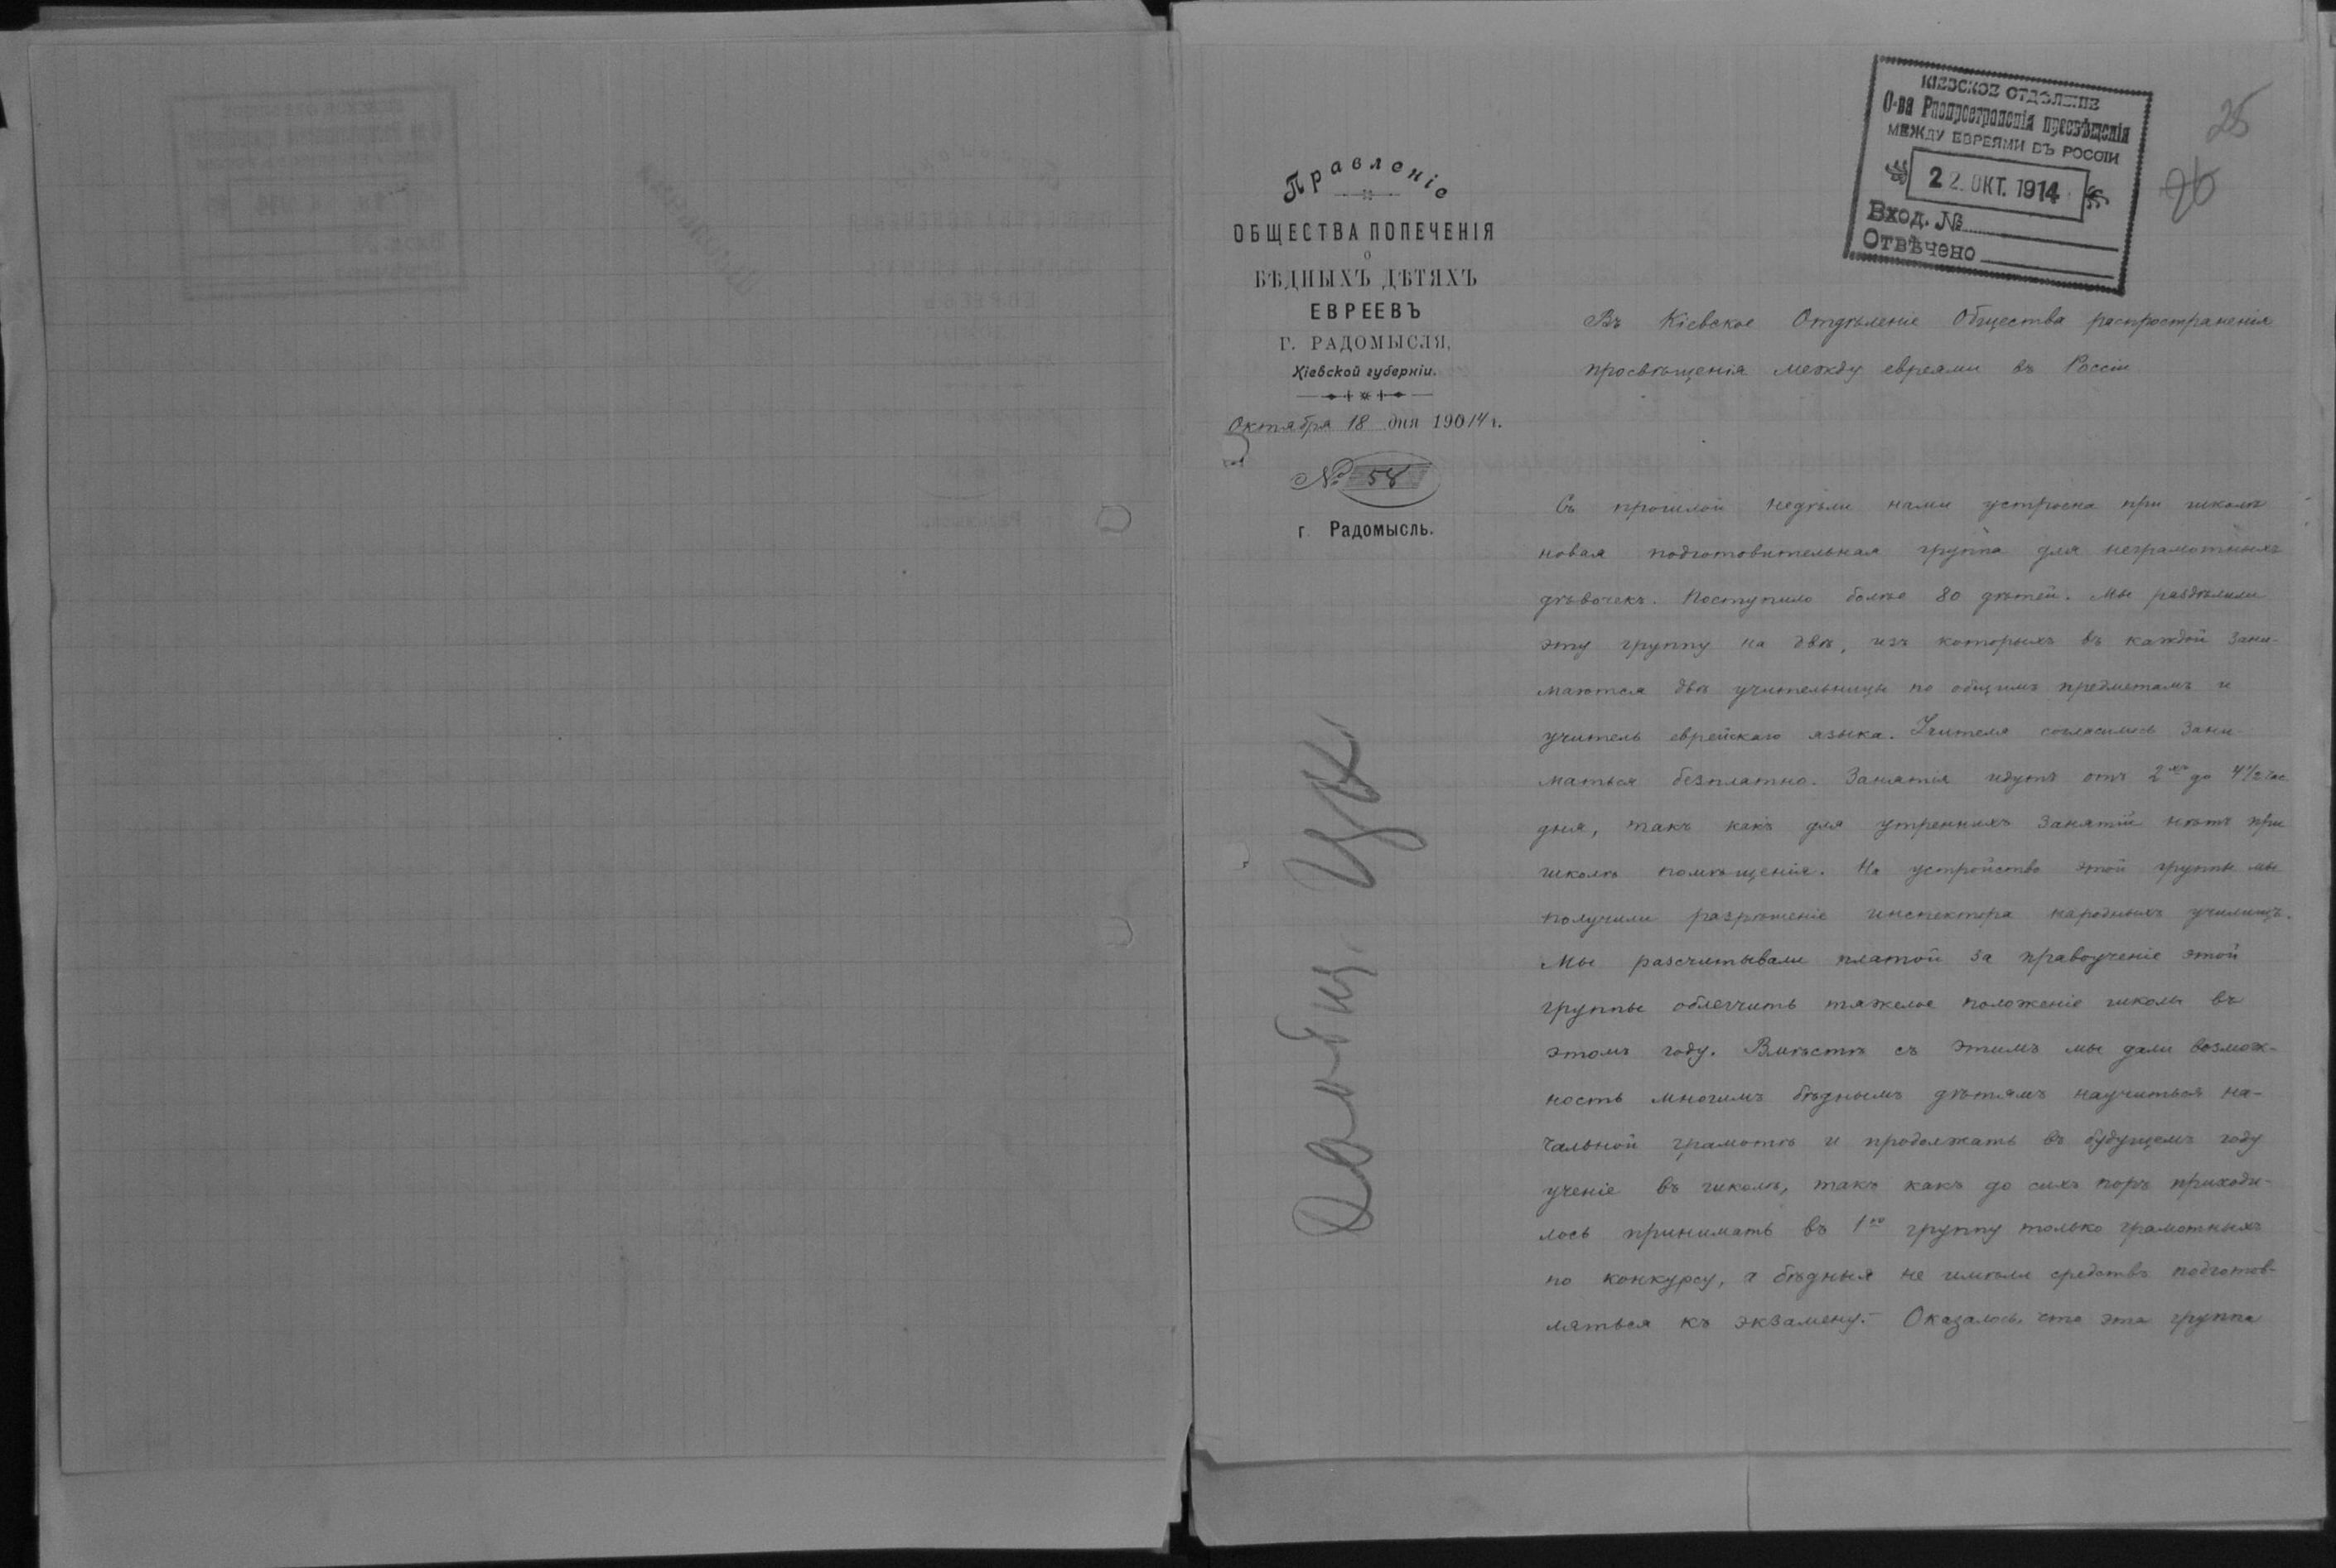 КІЕВСКОЕ ОТДѢЛЕНІЕ
О-ва Распространенія просвѣщенія
МЕЖДУ ЕВРЕЯМИ ВЪ РОССІИ
22. ОКТ. 1914
Вход. №
Отвѣчено
25
26
Правленіе
ОБЩЕСТВА ПОПЕЧЕНІЯ
о
БѢДНЫХЪ ДѢТЯХЪ
ЕВРЕЕВЪ
Г. РАДОМЫСЛЯ,
Кіевской губерніи.
Октября 18 дня 19014 г.
№ 58
г. Радомысль.
Въ Кіевское Отдѣленіе Общества распространенія
просвѣщенія между евреями въ Россіи
Съ прошлой недѣли нами устроена при школѣ
новая подготовительная группа для неграмотныхъ
дѣвочекъ. Поступило болѣе 80 дѣтей. Мы раздѣлили
эту группу на двѣ, изъ которыхъ въ каждой зани-
маются двѣ учительницы по общимъ предметамъ и
учитель еврейскаго языка. Учителя согласились зани-
маться безплатно. Занятія идутъ отъ 2хъ до 4½ час
дня, такъ какъ для утреннихъ занятій нѣтъ при
школѣ помѣщенія. На устройство этой группы мы
получили разрѣшеніе инспектора народныхъ училищъ.
Мы разсчитывали платой за правоученіе этой
группы облегчить тяжелое положеніе школы въ
этомъ году. Вмѣстѣ съ этимъ мы дали возмож-
ность многимъ бѣднымъ дѣтямъ научиться на-
чальной грамотѣ и продолжать въ будущемъ году
ученіе въ школѣ, такъ какъ до сихъ поръ приходи-
лось принимать въ 1ую группу только грамотныхъ
по конкурсу, а бѣдныя не имѣли средствъ подготов-
ляться къ экзамену. – Оказалось, что эта группа